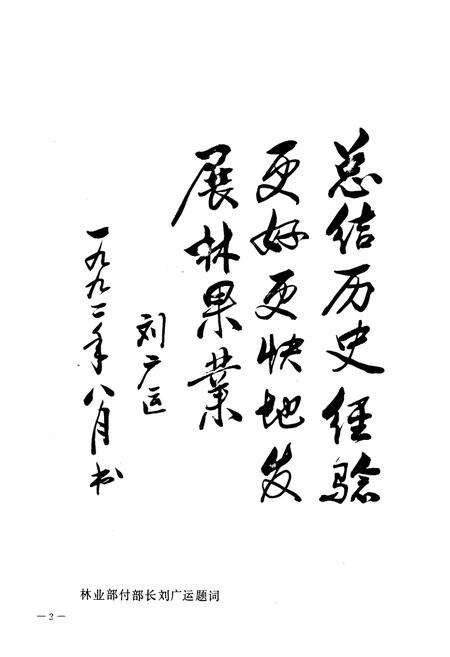 总结历史经验
更好更快地发
展林果業
刘广运
一九九二年八月书
林业部付部长刘广运题词
— 2 —